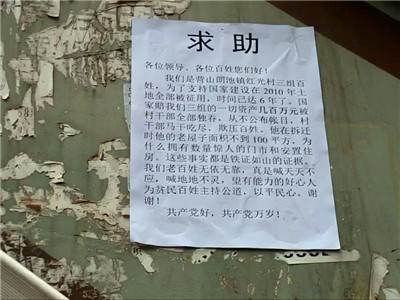 求助
各位领导、各位百姓您们好！
我们是营山朗池镇红光村三组百
姓，为了支持国家建设在 2010 年土
地全部被征用，时间已达 6 年了。国
家赔我们三组的一切资产几百万元被
村干部全部独吞，从不公布帐目，村
干部马干吃尽，欺压百姓。他在拆迁
时他的老屋子面积不到 100 平方，为
什么拥有数量惊人的门市和安置住
房。这些事实都是铁证如山的证据。
我们老百姓无依无靠，真是喊天天不
应，喊地地不灵，望有能力的好心人
为贫民百姓主持公道，以平民心。谢
谢！
共产党好，共产党万岁！